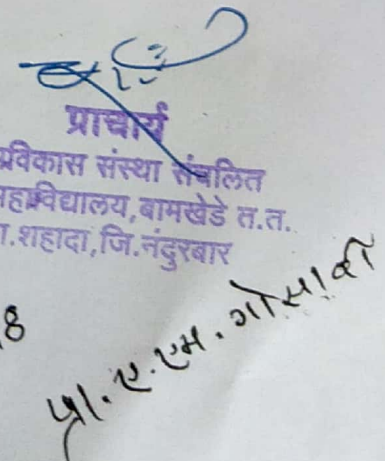 प्राचार्य
ग्रविकास संस्था संचलित
महाविद्यालय,बामखेडे त.त.
ता.शहादा,जि.नंदुरबार
8
प्रा. ए. एम. गोसावी